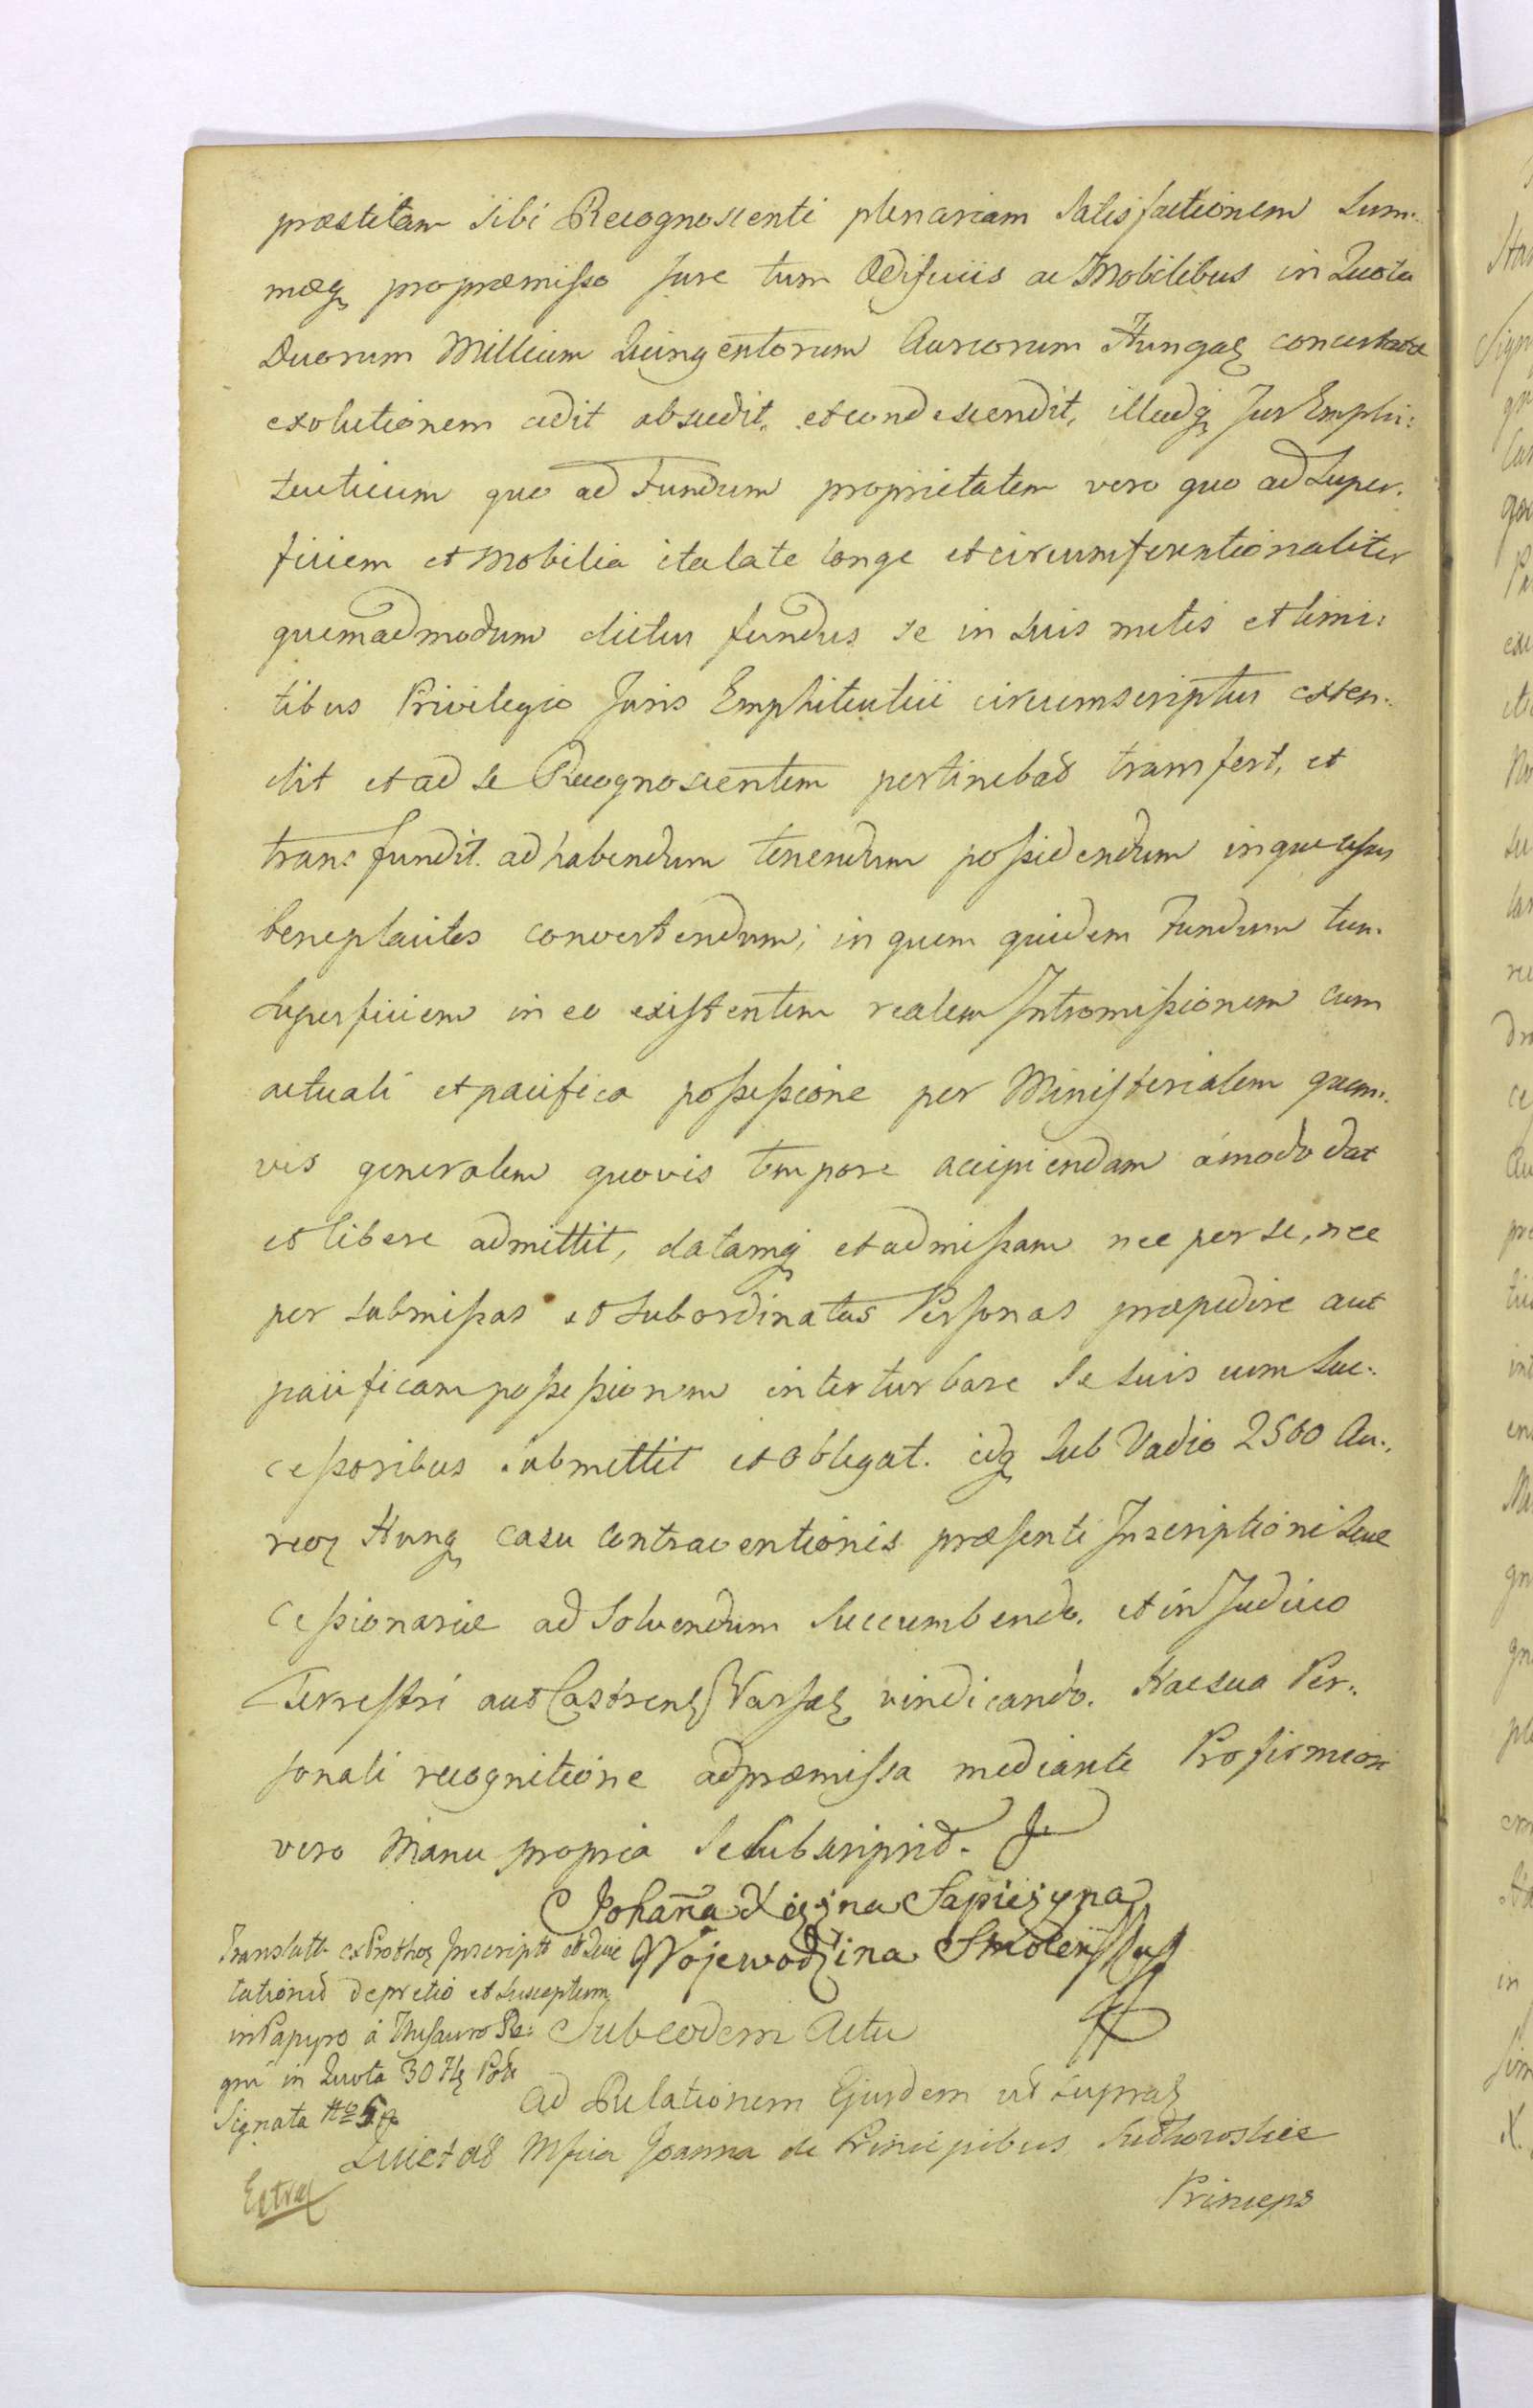 præstitam sibi Recognoscenti plenariam Satisfactionem Sum:
mæq propræmisso Jure tum Ædificiis ac Mobilibus in Quota
Duorum Millium Quingentorum Aureorum Hungaq concertatæ
exolutionem cedit abscedit, et condescendit, illudq Jus Emphi:
teuticum quo ad Fundum proprietatem vero quo ad Super:
ficiem et Mobilia ita late longe et circumferentionaliter
quemadmodum dictus fundus se in suis metis et limi:
tibus Privilegio Juris Emphiteutici circumscriptus exten:
dit et ad se Recognoscentem pertinebat transfert, et
transfundit ad habendum tenendum possidendum inque usus
beneplacitos convertendum; in quem quidem Fundum tum
Superficiem in eo existentem realem Intromissionem cum
actuali et pacifica possessione per Ministerialem quem:
vis generalem quovis tempore accipiendam ámodo dat
et libere admittit, datamq et admissam nec per se, nec
per submissas et subordinatas Personas præpedire aut
pacificam possessionem interturbare se suis cum suc:
cessoribus submittit et obligat. idq sub Vadio 2500 Au:
reoq Hung casu contraventionis præsenti Inscriptioni suæ
Cessionariæ ad solvendum succumbendo. et in Judicio
Terrestri aut Castrenq Varsaq vindicando. Hac sua Per:
sonali recognitione ad præmissa mediante Pro firmiori
vero Manu propria se subscripsit.
Johanna Xiężna Sapieżyna
Wojewodzina Smoleńska
Translatt ex Prothoq Inscriptt et Quie
tationum de pretio et susceptum
in Papyro á Thesauro Re:
gni in Quota 30 Flq Poll
Signata
Sub eodem Actu
Ad Relationem Ejusdem ut supraq
Quietat Mfica Joanna de Principibus Sułkowskie
Princeps
Extrad